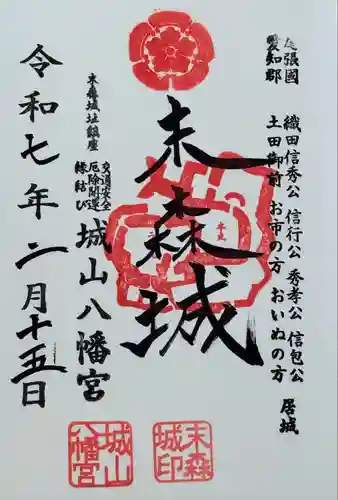 尾張國
愛知郡
織田信秀公 信行公 秀孝公 信包公
土田御前 お市の方 おいぬの方
居城
末森城
末森城址鎮座
交通安全
厄除開運
縁結び
城山八幡宮
令和七年二月十五日
末森
城印
城山
八幡宮